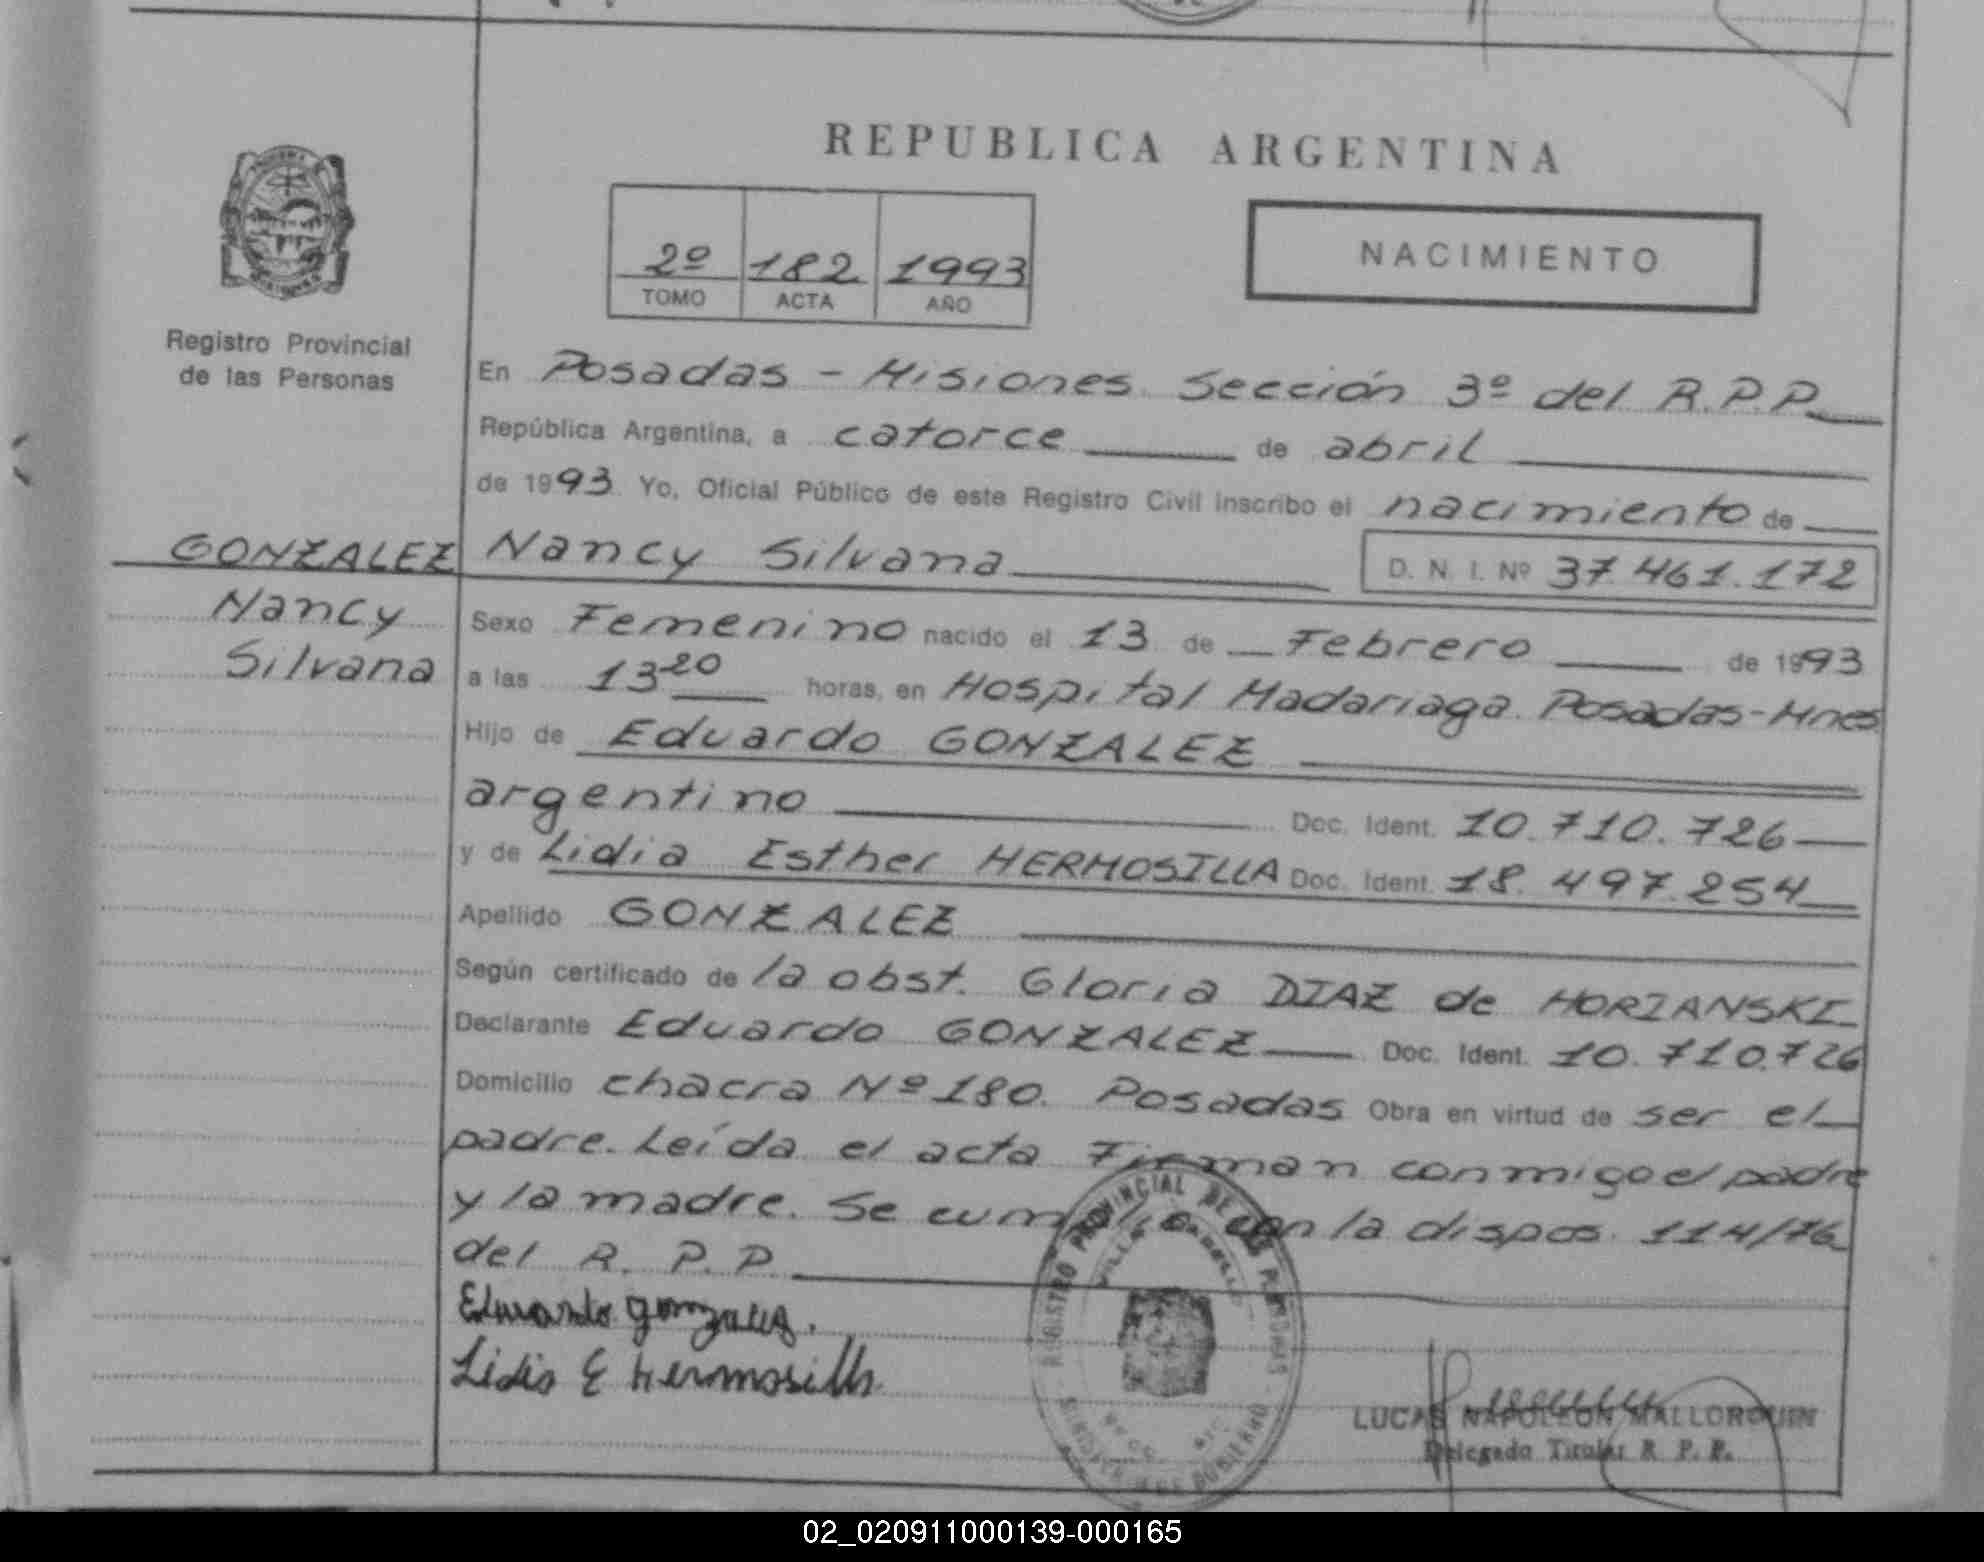 REPUBLICA ARGENTINA
2º 182 1993
TOMO ACTA AÑO
NACIMIENTO
Registro Provincial
de las Personas
En Posadas - Misiones Sección 3º del R.P.P.
República Argentina, a catorce de abril
de 1993. Yo, Oficial Público de este Registro Civil inscribo el nacimiento de
GONZALEZ Nancy Silvana D. N. I. Nº 37.461.172
Nancy
Silvana
Sexo Femenino nacido el 13 de Febrero de 1993
a las 13 20 horas, en Hospital Madariaga. Posadas-Mnes
Hijo de Eduardo GONZALEZ
argentino Doc. Ident. 10.710.726
y de Lidia Esther HERMOSILLA Doc. Ident. 18.497.254
Apellido GONZALEZ
Según certificado de la obst. Gloria DIAZ de HORIANSKI
Declarante Eduardo GONZALEZ Doc. Ident. 10.710.726
Domicilio chacra Nº 180. Posadas Obra en virtud de ser el
padre. Leída el acta Firman conmigo el padre
y la madre. Se cumplió con la dispos. 114/76
del R. P. P.
Eduardo gonzalez.
Lidia E Hermosilla
REGISTRO PROVINCIAL DE LAS PERSONAS
MINISTERIO DE GOBIERNO
LUCAS NAPOLEON MALLORQUIN
Delegado Titular R. P. P.
02_020911000139-000165